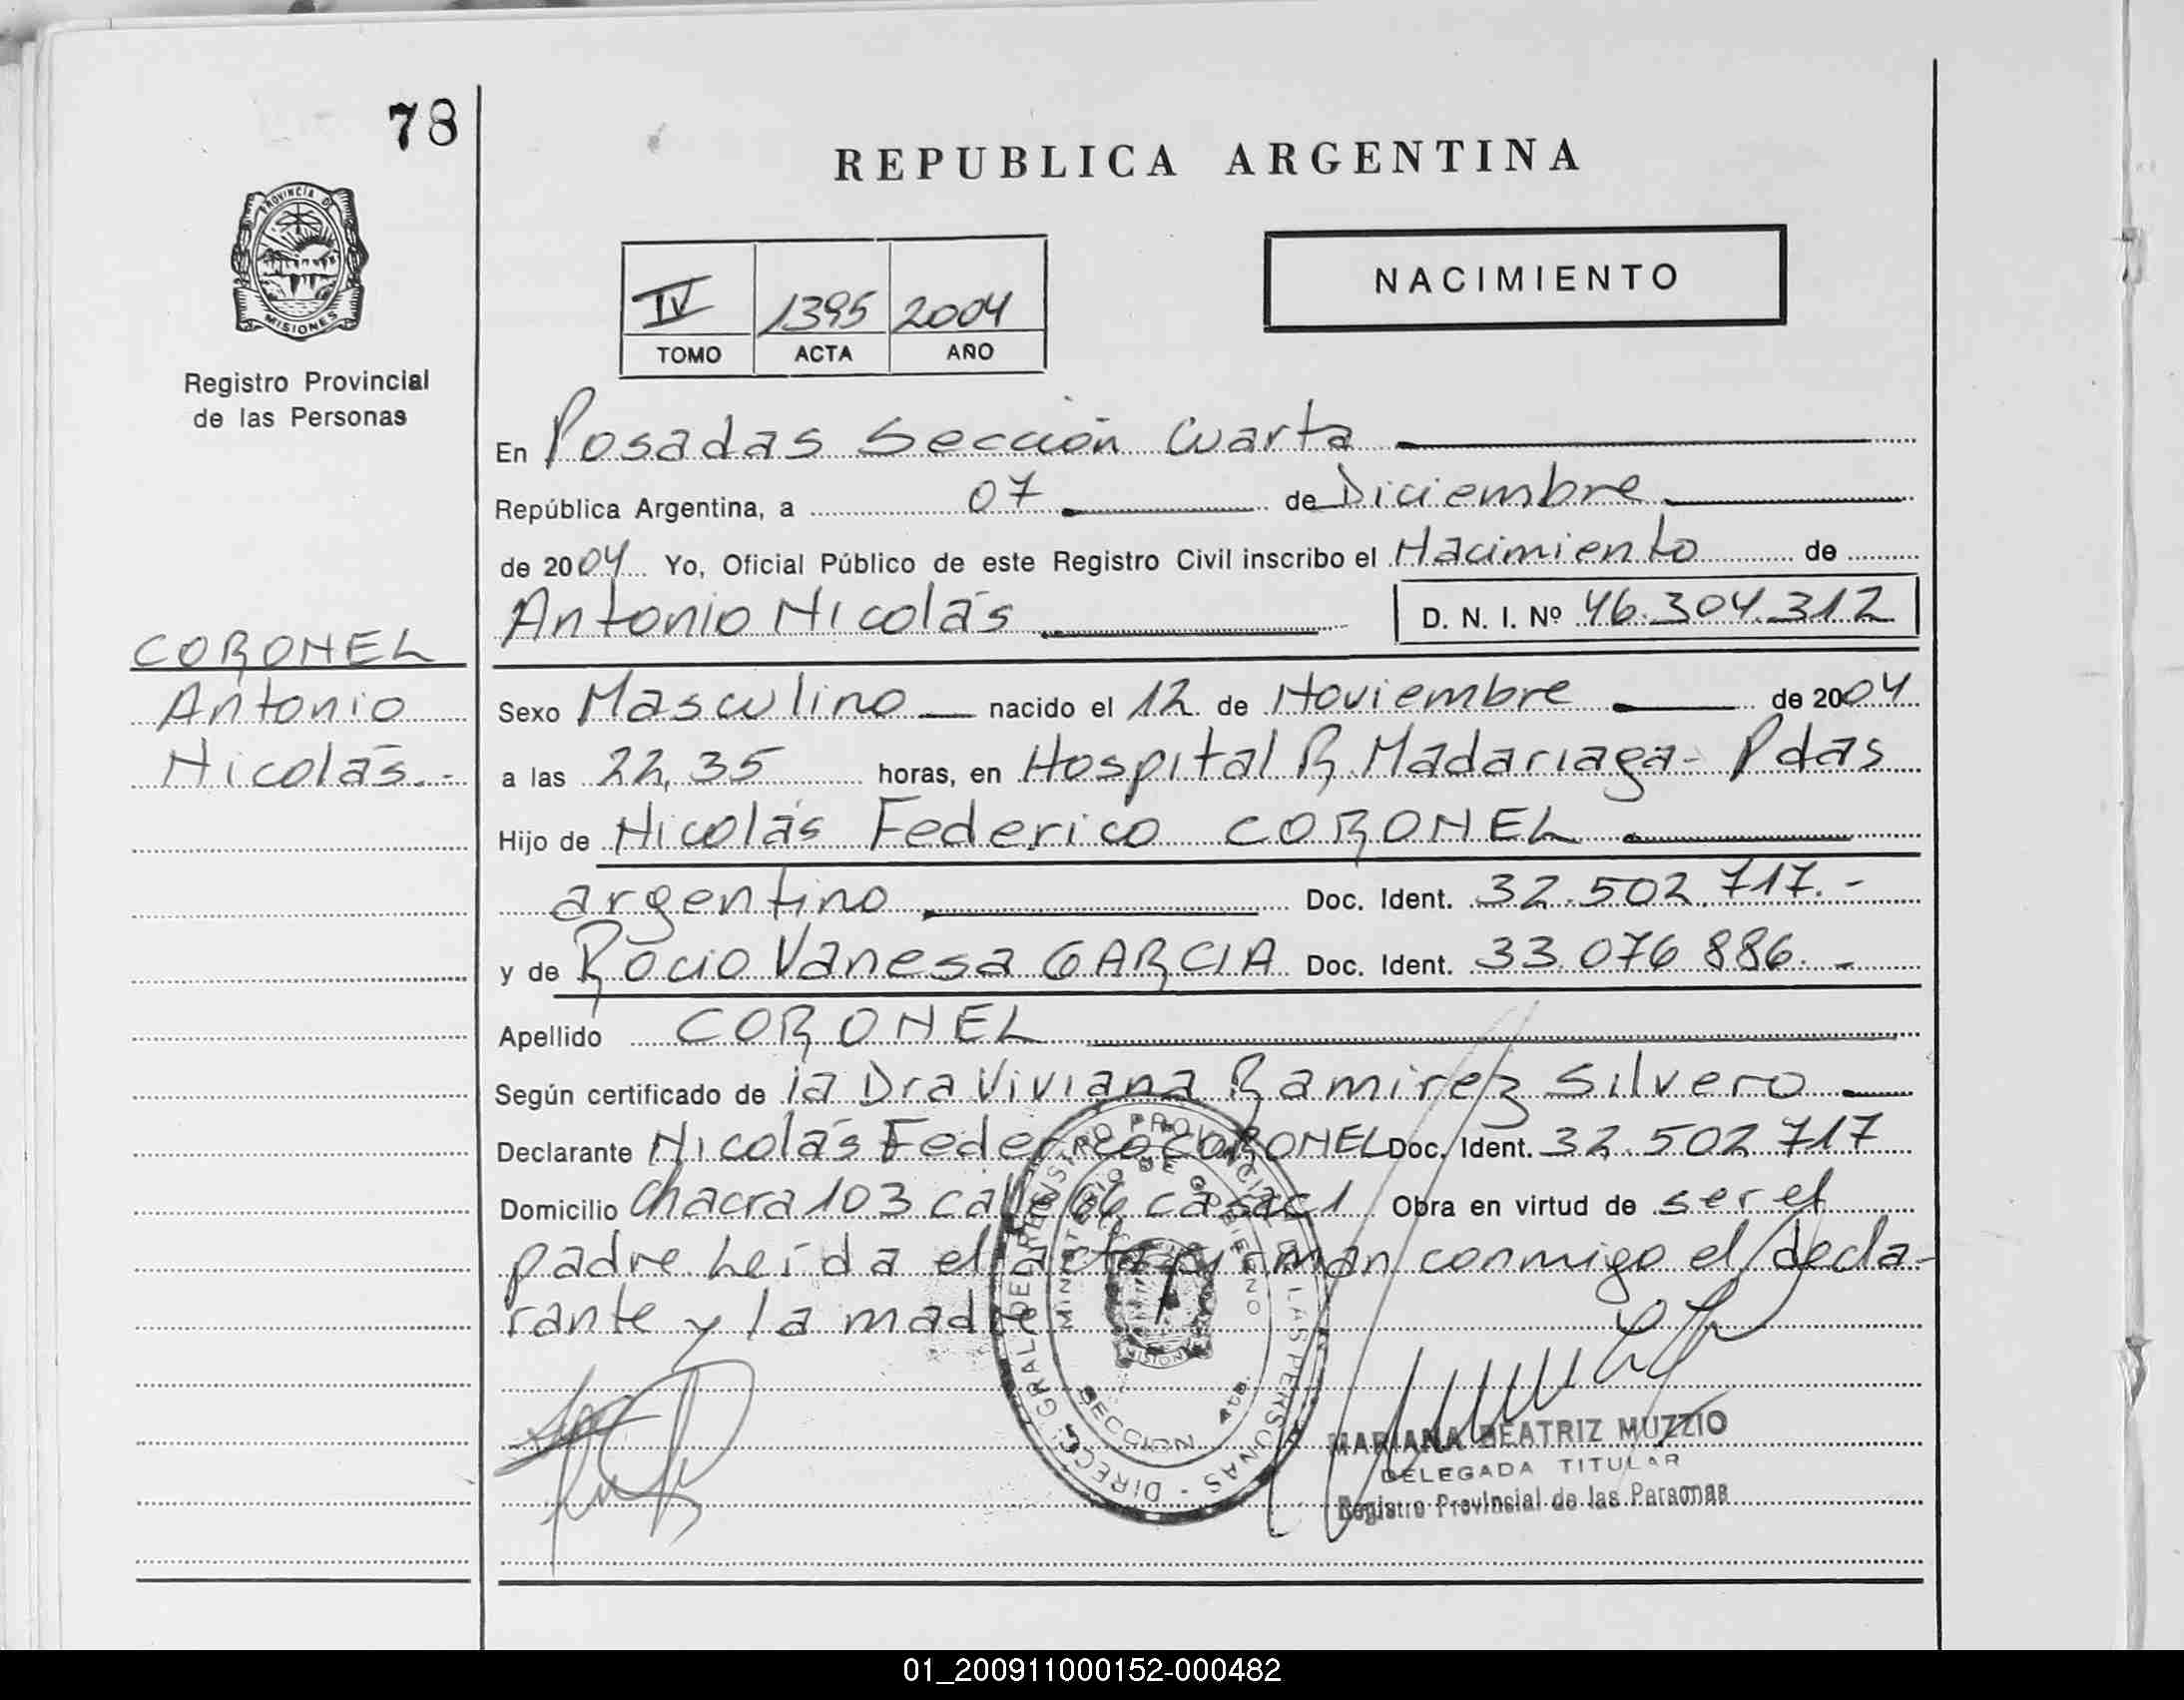 78
REPUBLICA ARGENTINA
PROVINCIA D
MISIONES
NACIMIENTO
IV 1395 2004
TOMO ACTA AÑO
Registro Provincial
de las Personas
En Posadas Sección Cuarta
República Argentina, a 07 de Diciembre
de 2004 Yo, Oficial Público de este Registro Civil inscribo el Nacimiento de
Antonio Nicolás D. N. I. Nº 46.304.312
CORONEL
Antonio
Nicolás.-
Sexo Masculino nacido el 12 de Noviembre de 2004
a las 22,35 horas, en Hospital R. Madariaga- Pdas
Hijo de Nicolás Federico CORONEL
argentino Doc. Ident. 32.502.717.-
y de Rocio Vanesa GARCIA Doc. Ident. 33.076 886.-
Apellido CORONEL
Según certificado de la Dra Viviana Ramirez Silvero
Declarante Nicolás Federico CORONEL Doc. Ident. 32.502 717
Domicilio Chacra 103 calle casa Obra en virtud de ser el
padre Leída el acta firman conmigo el decla-
rante y la madre
DIRECC. GRAL. DEL REGISTRO PROVINCIAL DE LAS PERSONAS -
MINISTERIO DE GOBIERNO
SECCION 4ta.
MISIONES
MARIANA BEATRIZ MUZZIO
DELEGADA TITULAR
Registro Provincial de las Personas
01_200911000152-000482